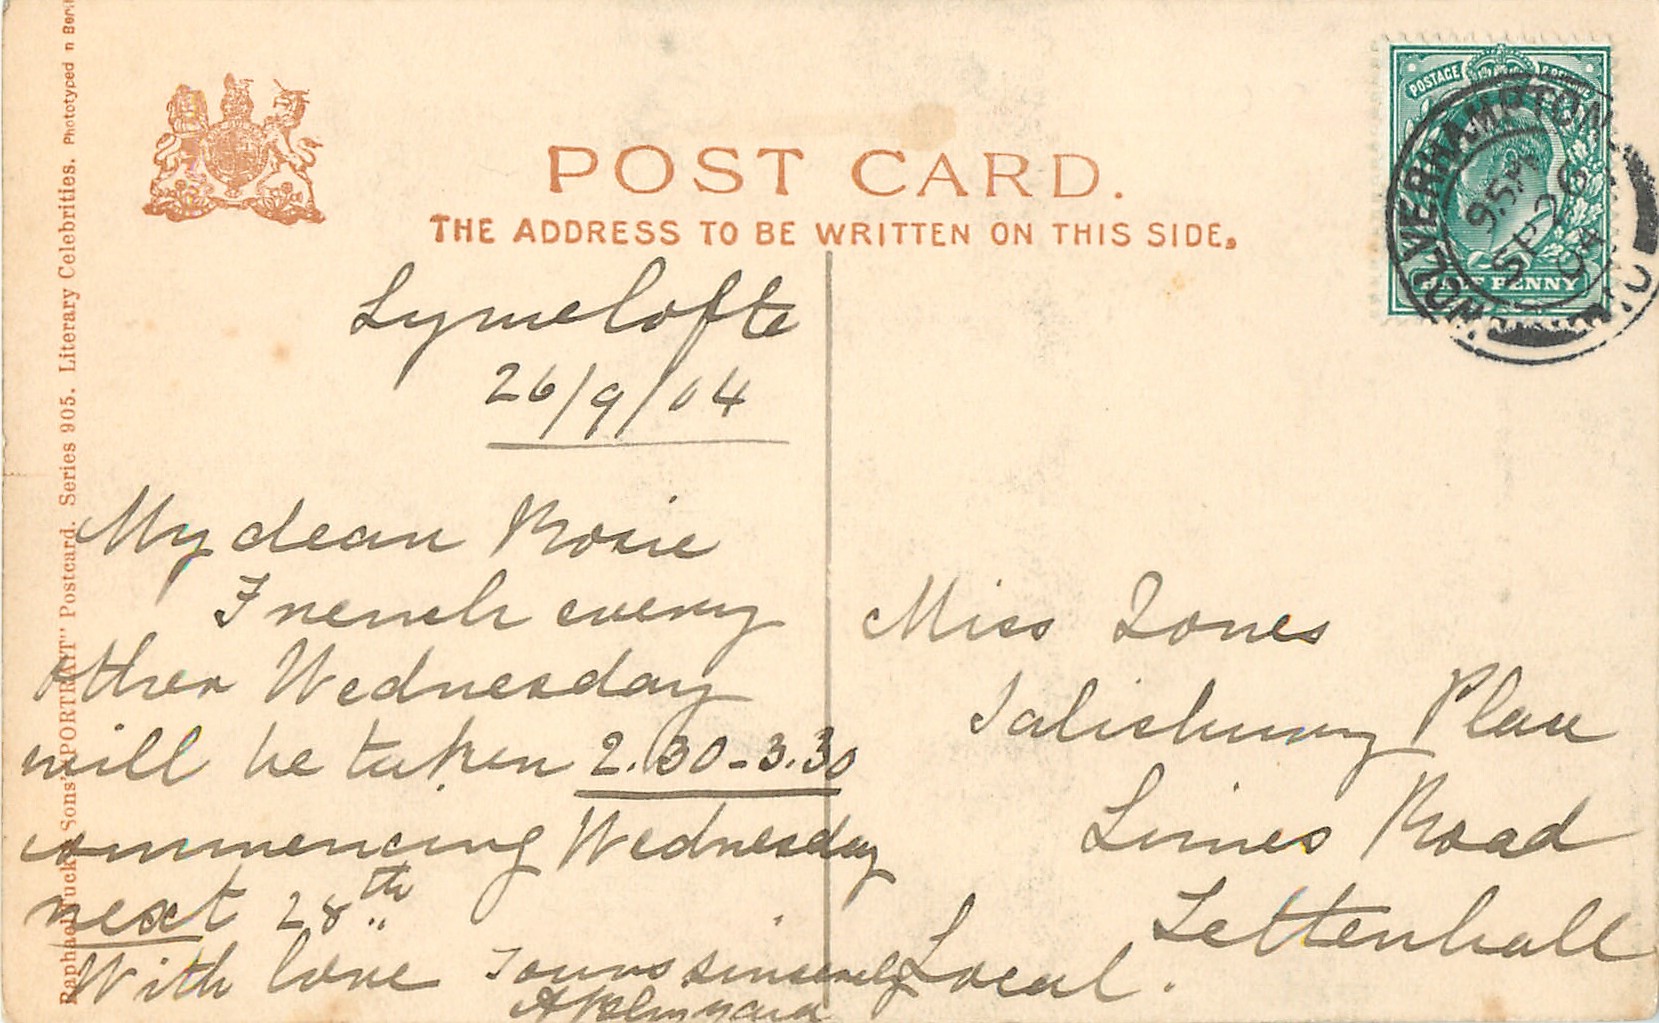 POST CARD.
THE ADDRESS TO BE WRITTEN ON THIS SIDE.
Raphael Tuck & Sons' "PORTRAIT" Postcard. Series 905. Literary Celebrities. Phototyped in Ber
POSTAGE
PENNY
WOLVERHAMPTON
9.5 PM
SP 26
04
Lymelofte
26/9/04
My dear Rosie
French every
other Wednesday
will be taken 2.30-3.30
commencing Wednesday
next 28th
With love Yours sincerely
Miss Jones
Salisbury Place
Limes Road
Tettenhall
Local.